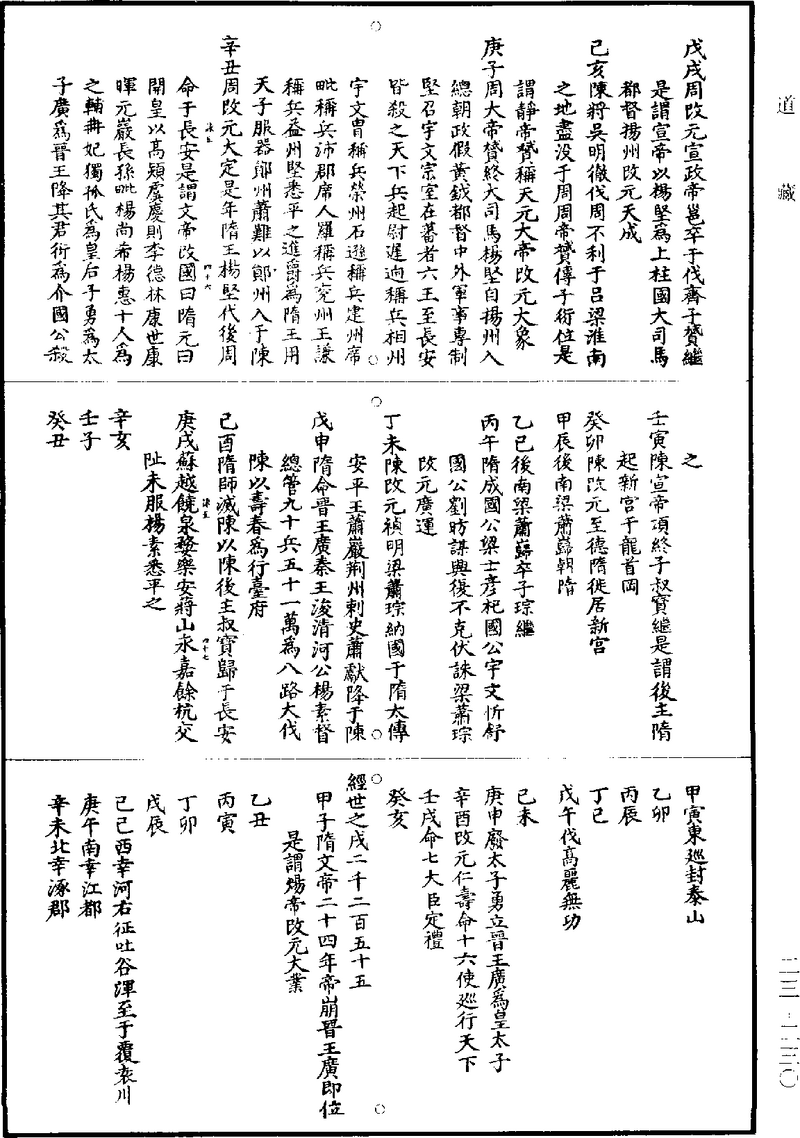 道藏
戊戌周改元宣政帝邕卒于伐齊子贇繼
是謂宣帝以楊堅爲上柱國大司馬
都督揚州改元天成
己亥陳將吳明徹伐周不利于呂梁淮南
之地盡没于周周帝贇傳子衍位是
謂靜帝贇稱天元大帝改元大象
庚子周大帝贇終大司馬楊堅自揚州入
總朝政假黃鉞都督中外軍事專制
堅召宇文宗室在蕃者六王至長安
皆殺之天下兵起尉遲逈稱兵相州
宇文胄稱兵滎州石遜稱兵建州席
毗稱兵沛郡席人羅稱兵兖州王謙
稱兵益州堅悉平之進爵爲隋王用
天子服器鄖州蕭難以鄖州入于陳
辛丑周改元大定是年隋王楊堅代後周
命于長安是謂文帝改國曰隋元曰
開皇以高熲虞慶則李德林康世康
暉元巖長孫毗楊尚希楊惠十人爲
之輔冊妃獨孤氏爲皇后子勇爲太
子廣爲晉王降其君衍爲介國公殺
之
壬寅陳宣帝頊終子叔寶繼是謂後主隋
起新宮于龍首岡
癸卯陳改元至德隋徙居新宮
甲辰後南梁蕭巋朝隋
乙巳後南梁蕭巋卒子琮繼
丙午隋成國公梁士彦杞國公宇文忻舒
國公劉昉謀興復不克伏誅梁蕭琮
改元廣運
丁未陳改元禎明梁蕭琮納國于隋太傅
安平王蕭巖荆州刺史蕭獻降于陳
戊申隋命晉王廣秦王浚清河公楊素督
總管九十兵五十一萬爲八路大伐
陳以壽春爲行臺府
己酉隋師滅陳以陳後主叔寶歸于長安
庚戌蘇越饒泉婺樂安蔣山永嘉餘杭交
阯未服楊素悉平之
辛亥
壬子
癸丑
甲寅東巡封泰山
乙卯
丙辰
丁巳
戊午伐高麗無功
己未
庚申廢太子勇立晉王廣爲皇太子
辛酉改元仁壽命十六使巡行天下
壬戌命七大臣定禮
癸亥
經世之戌二千二百五十五
甲子隋文帝二十四年帝崩晉王廣即位
是謂煬帝改元大業
乙丑
丙寅
丁卯
戊辰
己巳西幸河右征吐谷渾至于覆袁川
庚午南幸江都
辛未北幸涿郡
二三·一二三〇